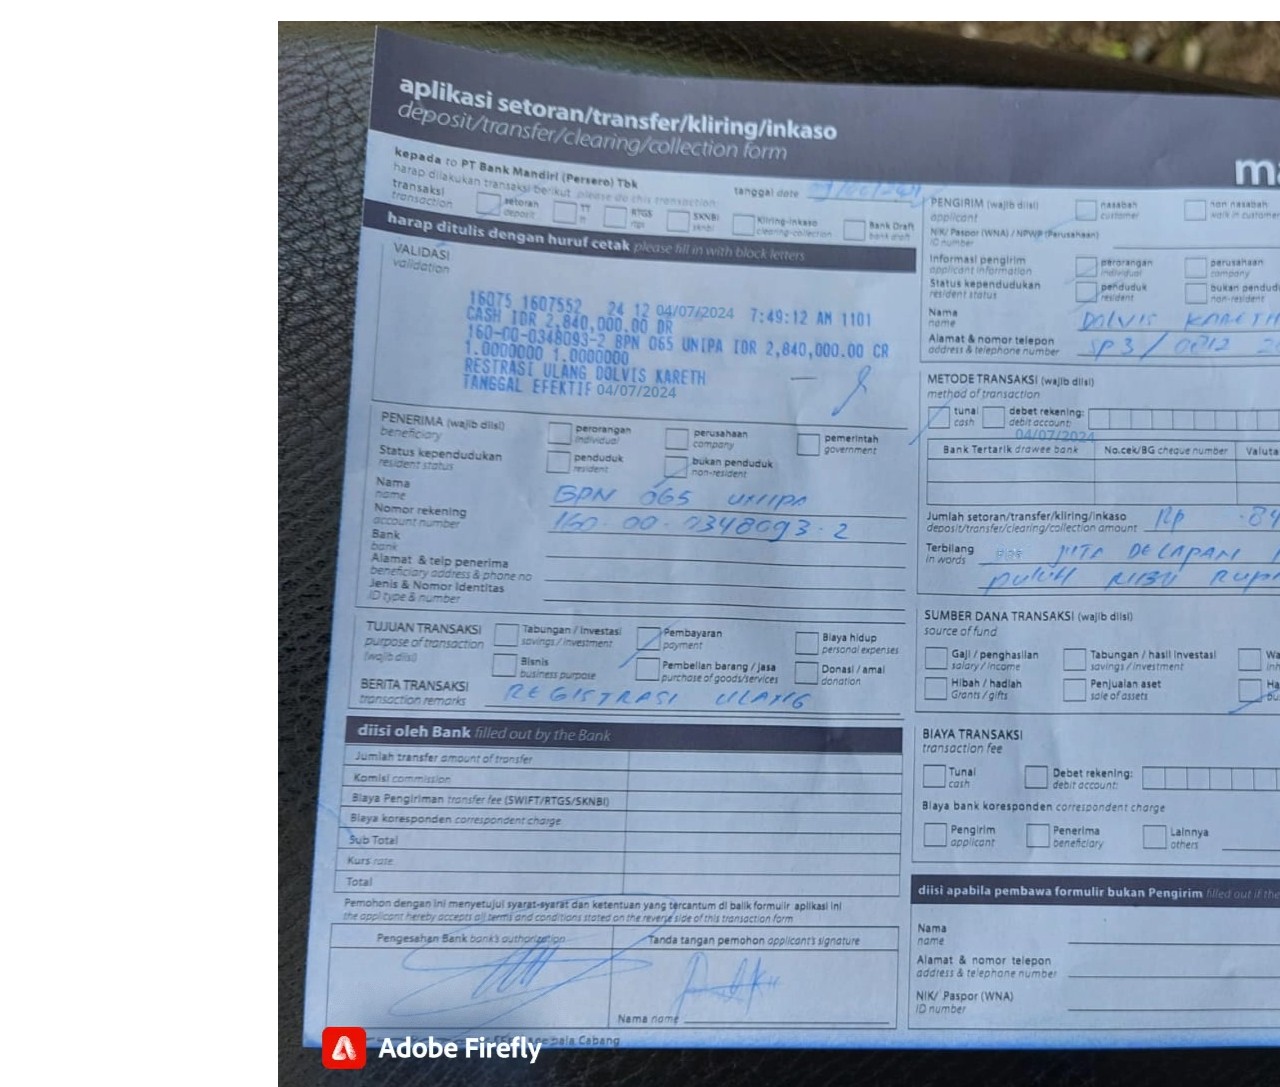 aplikasi setoran/transfer/kliring/inkaso
deposit/transfer/clearing/collection form
kepada to PT Bank Mandiri (Persero) Tbk
harap dilakukan transaksi berikut please do this transaction:
tanggal date
transaksi
transaction
setoran
deposit
TT
tt
RTGS
rtgs
SKNBI
sknbi
Kliring-inkaso
clearing-collection
Bank Draft
bank draft
harap ditulis dengan huruf cetak please fill in with block letters
VALIDASI
validation
16075 1607552 24 12 04/07/2024 7:49:12 AM 1101
CASH IDR 2,840,000.00 DR
160-00-0348093-2 BPN 065 UNIPA IDR 2,840,000.00 CR
1.0000000 1.0000000
RESTRASI ULANG DOLVIS KARETH
TANGGAL EFEKTIF 04/07/2024
PENERIMA (wajib diisi)
beneficiary
perorangan
individual
perusahaan
company
pemerintah
government
Status kependudukan
resident status
penduduk
resident
bukan penduduk
non-resident
Nama
name
BPN 065 UNIPA
Nomor rekening
account number
160-00-0348093-2
Bank
bank
Alamat & telp penerima
beneficiary address & phone no
Jenis & Nomor Identitas
ID type & number
TUJUAN TRANSAKSI
purpose of transaction
(wajib diisi)
Tabungan / Investasi
savings / investment
Pembayaran
payment
Biaya hidup
personal expenses
Bisnis
business purpose
Pembelian barang / jasa
purchase of goods/services
Donasi / amal
donation
BERITA TRANSAKSI
transaction remarks
REGISTRASI ULANG
diisi oleh Bank filled out by the Bank
Jumlah transfer amount of transfer
Komisi commission
Biaya Pengiriman transfer fee (SWIFT/RTGS/SKNBI)
Biaya koresponden correspondent charge
Sub Total
Kurs rate
Total
Pemohon dengan ini menyetujui syarat-syarat dan ketentuan yang tercantum di balik formulir aplikasi ini
the applicant hereby accepts all terms and conditions stated on the reverse side of this transaction form
Pengesahan Bank bank's authorization
Tanda tangan pemohon applicant's signature
Nama name
Cabang
ma
PENGIRIM (wajib diisi)
applicant
nasabah
customer
non nasabah
walk in customer
NIK/ Paspor (WNA) / NPWP (Perusahaan)
ID number
Informasi pengirim
applicant information
perorangan
individual
perusahaan
company
Status kependudukan
resident status
penduduk
resident
bukan pendud
non-resident
Nama
name
DOLVIS KARETH
Alamat & nomor telepon
address & telephone number
SP 3 / 0812
METODE TRANSAKSI (wajib diisi)
method of transaction
tunai
cash
debet rekening:
debit account:
04/07/2024
Bank Tertarik drawee bank
No.cek/BG cheque number
Valuta
Jumlah setoran/transfer/kliring/inkaso
deposit/transfer/clearing/collection amount
Rp .84
Terbilang
in words
JUTA DELAPAN
PULUH RIBU RUPI
SUMBER DANA TRANSAKSI (wajib diisi)
source of fund
Gaji / penghasilan
salary / income
Tabungan / hasil investasi
savings / investment
Wa
inh
Hibah / hadiah
Grants / gifts
Penjualan aset
sale of assets
Ha
bu
BIAYA TRANSAKSI
transaction fee
Tunai
cash
Debet rekening:
debit account:
Biaya bank koresponden correspondent charge
Pengirim
applicant
Penerima
beneficiary
Lainnya
others
diisi apabila pembawa formulir bukan Pengirim filled out if the
Nama
name
Alamat & nomor telepon
address & telephone number
NIK/ Paspor (WNA)
ID number
Adobe Firefly